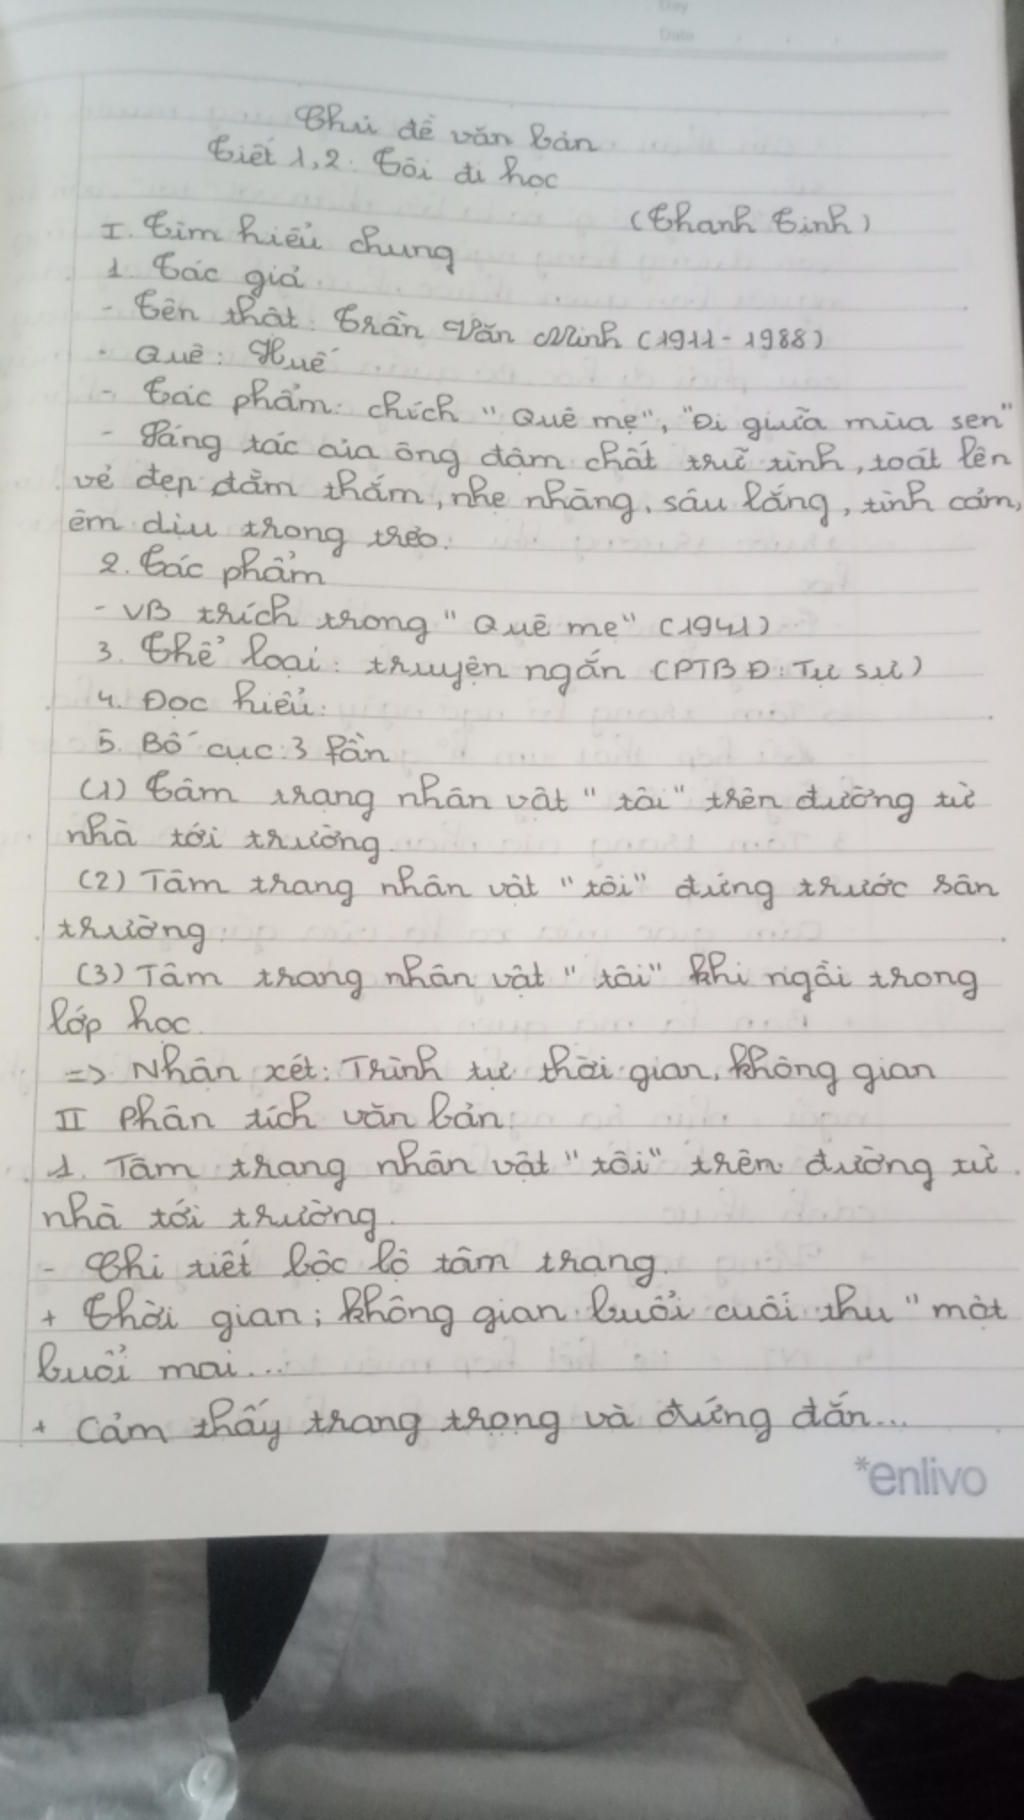 Day
Date
Chủ đề văn bản
Tiết 1,2: Tôi đi học
(Thanh Tịnh)
I. Tìm hiểu chung
1. Tác giả
- Tên thật: Trần Văn Ninh (1911-1988)
- Quê: Huế
- Tác phẩm: chích "Quê mẹ", "Đi giữa mùa sen"
- Sáng tác của ông đậm chất trữ tình, toát lên
vẻ đẹp đằm thắm, nhẹ nhàng, sâu lắng, tình cảm,
êm dịu trong trẻo.
2. Tác phẩm
- VB trích trong "Quê mẹ" (1941)
3. Thể loại: truyện ngắn (PTBĐ: Tự sự)
4. Đọc hiểu:
5. Bố cục: 3 fần
(1) Tâm trạng nhân vật "tôi" trên đường từ
nhà tới trường.
(2) Tâm trạng nhân vật "tôi" đứng trước sân
trường
(3) Tâm trạng nhân vật "tôi" khi ngồi trong
lớp học.
=> Nhận xét: Trình tự thời gian, không gian
II Phân tích văn bản
1. Tâm trạng nhân vật "tôi" trên đường từ
nhà tới trường.
- Chi tiết bộc lộ tâm trạng.
+ Thời gian; không gian buổi cuối thu "một
buổi mai...
+ Cảm thấy trang trọng và đứng đắn...
*enlivo